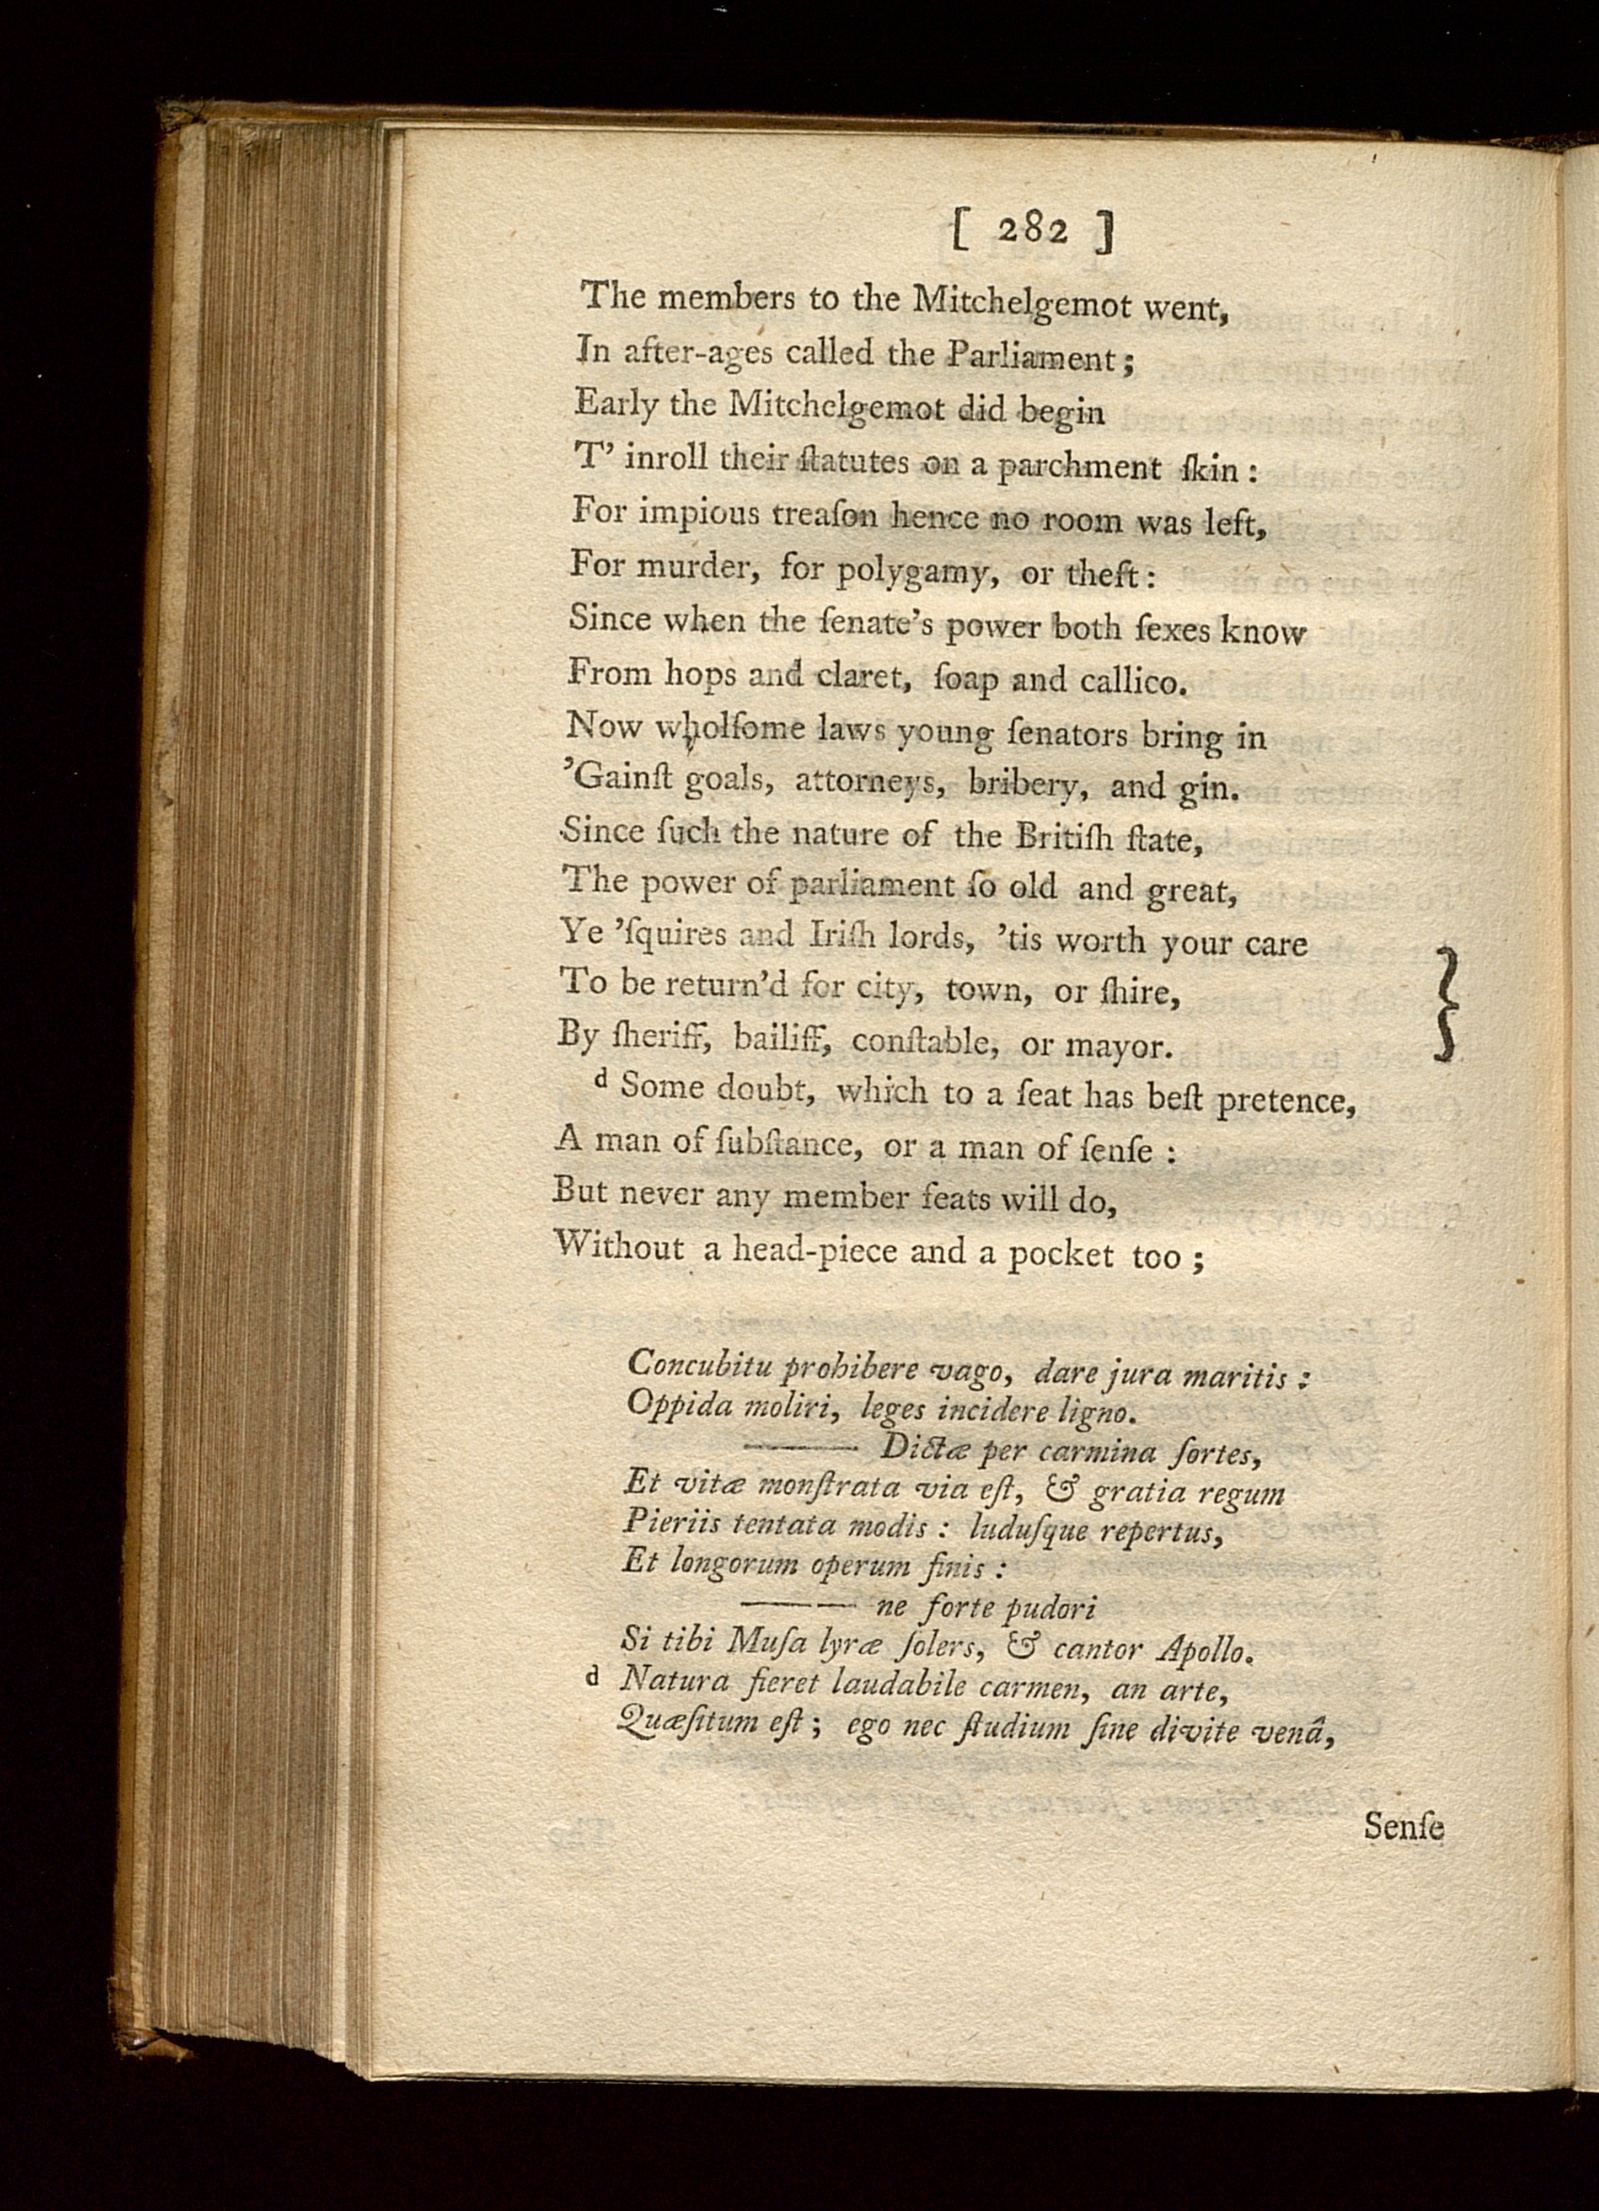 [ 282 ]
The members to the Mitchelgemot went,
In after-ages called the Parliament;
Early the Mitchelgemot did begin
T' inroll their ſtatutes on a parchment ſkin :
For impious treaſon hence no room was left,
For murder, for polygamy, or theft :
Since when the ſenate's power both ſexes know
From hops and claret, ſoap and callico.
Now wholſome laws young ſenators bring in
'Gainſt goals, attorneys, bribery, and gin.
Since ſuch the nature of the Britiſh ſtate,
The power of parliament ſo old and great,
Ye 'ſquires and Iriſh lords, 'tis worth your care
To be return'd for city, town, or ſhire,
By ſheriff, bailiff, conſtable, or mayor.
d Some doubt, which to a ſeat has beſt pretence,
A man of ſubſtance, or a man of ſenſe :
But never any member feats will do,
Without a head-piece and a pocket too ;
Concubitu prohibere vago, dare jura maritis :
Oppida moliri, leges incidere ligno.
——— Dictæ per carmina ſortes,
Et vitæ monſtrata via eſt, & gratia regum
Pieriis tentata modis : luduſque repertus,
Et longorum operum finis :
——— ne forte pudori
Si tibi Muſa lyræ ſolers, & cantor Apollo.
d Natura fieret laudabile carmen, an arte,
Quæſitum eſt ; ego nec ſtudium ſine divite venâ,
Senſe